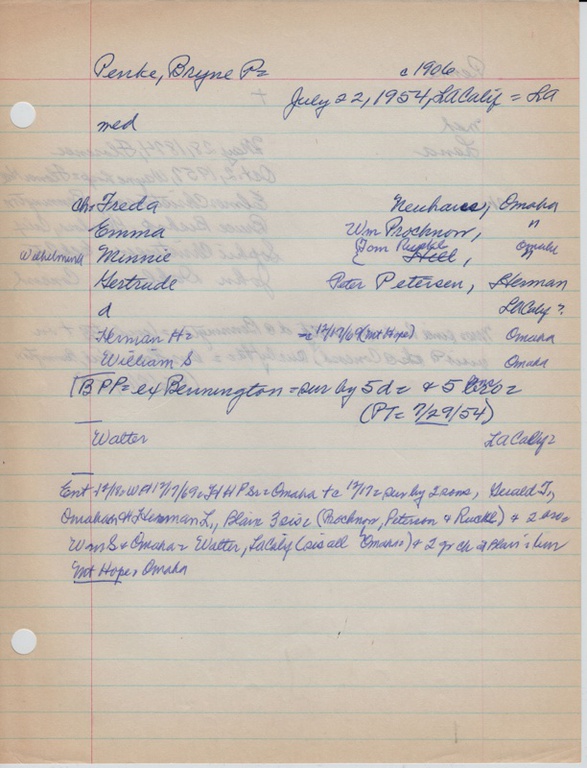 Penke, Bryne P= c 1906
July 22, 1954, LACalif = LA
med
Ch. Freda Neuhaus, Omaha
Emma Wm Prochnow, "
Wilhelmina Minnie (Tom Ruckle Hell, Omaha
Gertrude Peter Petersen, Herman
d LaCaly?
Herman H= = 12/17/69 (Mt Hope) Omaha
William S Omaha
BPP= ex Bennington = sur by 5 d= & 5 bro=
(PT= 7/29/54)
Walter LaCaly=
Ent 12/19= WH 12/17/69= HHP Sr= Omaha + c 12/17= sur by 2 sons, Gerald T.,
Omaha & Herman L., Blair 3 sis= (Prochnow, Petersen & Ruckle) & 2 bro=
Wm S= Omaha= Walter, LaCaly (sis all Omaha=) & 2 gr ch = Blair = bur
Mt Hope, Omaha